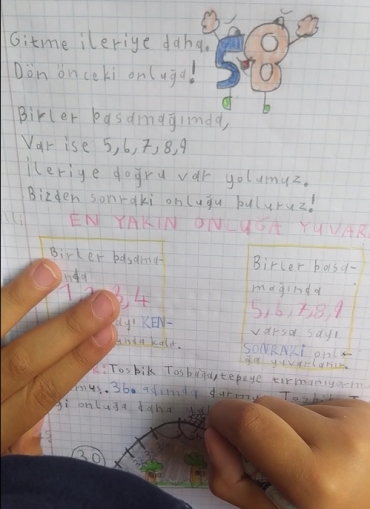 Gitme ileriye daha.
58
Dön önceki onluğa!
Birler basamağımda,
Var ise 5,6,7,8,9
ileriye doğru var yolumuz.
Bizden sonraki onluğu buluruz!
EN YAKIN ONLUĞA YUVAR
Birler basama-
ında
3,4
KEN-
kalır.
Birler basa-
mağında
5,6,7,8,9
varsa sayı
SONRAKİ onlu-
ğa yuvarlanır.
Tosbik Tosbağa, tepeye tırmanıyorm
muş. 36. adımda
onluğa daha
30